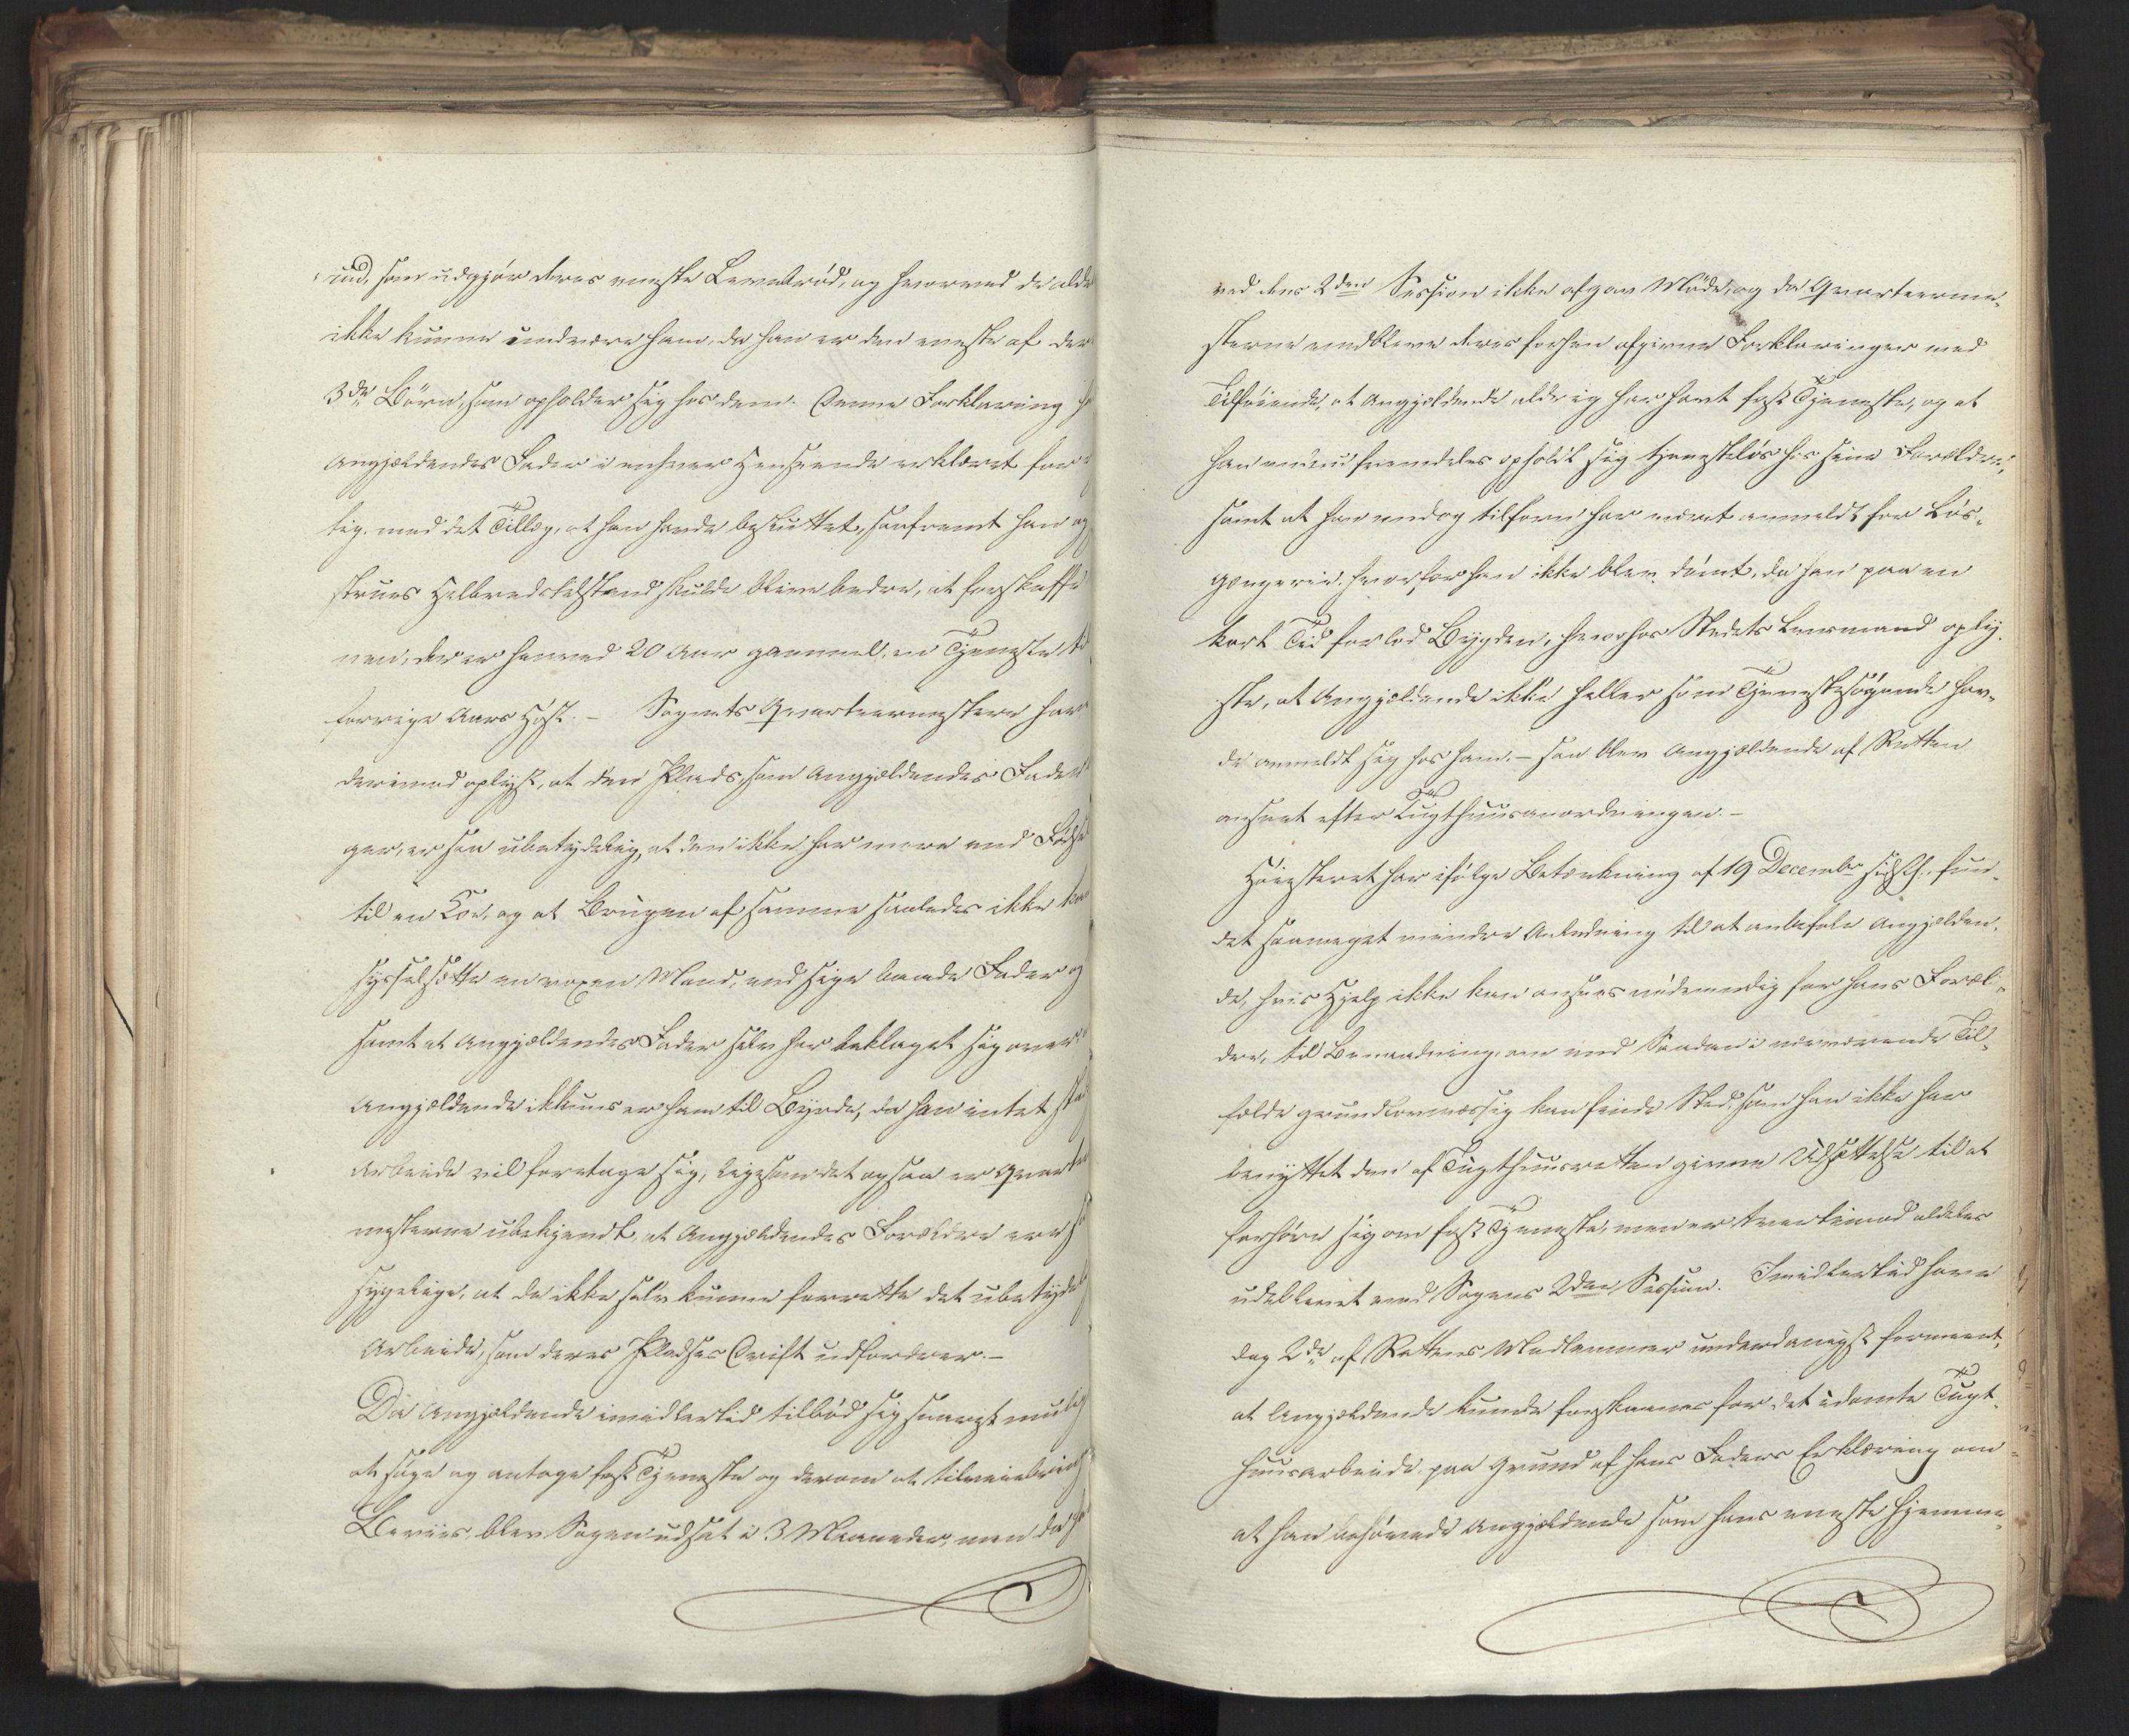 rud, som udgjør deres eneste Levebrød, og hvorved de alde
ikke kunne undvære ham, da han er den eneste af der
3de Børn, som opholder sig hos dem. Denne Forklaring
Angjældendes Fader i enhver Henseende erklæret for
tig. med det Tillæg, at han havde besluttet, saafremt han og
struens Helbredstilstand skulde blive bedre, at forskaffe
nen, der er henved 20 Aar gammel, en Tjeneste
forrige Aars Høst. – Sognets Qvarteermestere have
derimod oplyst, at den Plads, som Angjældendes Fader
ger, er saa ubetydelig, at den ikke har mere end Fødse
til en Koe, og at Brugen af samme saaledes ikke kan
sysselsætte en voxen Mand, end sige baade Fader og
samt at Angjældendes Fader selv har beklaget sig over
Angjældende ikkuns er ham til Byrde, da han intet
Arbeide vil foretage sig, ligesom det ogsaa er Qvarteer
mesterne ubekjendt, at Angjældendes Forældre ere
sygelige, at de ikke selv kunne forrette det ubetyde
Arbeide, som deres Pladses Drift udfordrer. –
Da Angjældende imidlertid tilbød sig snarest mulig
at søge og antage fast Tjeneste og derom at tilveiebringe
Beviis, blev Sagen udsat i 3 Maaneder, men da
ved dens 2den Session ikke afgav Møde, og da Qvarteerme-
sterne vedbleve deres forhen afgivne Forklaringer med
Tilføiende, at Angjældende aldrig har havt fast Tjeneste, og at
han endnu fremdeles opholdt sig tjenesteløs hos sine Forældre,
samt at han endog tilforn har været anmeldt for Løs-
gængerie, hvorfor han ikke blev dømt, da han paa en
kort Tid forlod Bygden, hvorhos Stedets Lensmand oply-
ste, at Angjældende ikke heller som Tjenestesøgende hav-
de anmeldt sig hos ham, – saa blev Angjældende af Retten
anseet efter Tugthuusanordningen. –
Høiesteret har ifølge Betænkning af 19 December sidstl. fun-
det saameget mindre Anledning til at anbefale Angjælden-
de, hvis Hjelp ikke kan ansees nødvendig for hans Foræl-
dre, til Benaadning, om end Saadan i nærværende Til-
fælde grundlovmæssig kan finde Sted, som han ikke har
benyttet den af Tugthuusretten givne Udsættelse til at
forhøre sig om fast Tjeneste, men er tvertimod aldeles
udeblevet ved Sagens 2den Session. Imidlertid have
dog 2de af Rettens Medlemmer underdanigst formeent,
at Angjældende kunde forskaanes for det idømte Tugt-
huusarbeide, paa Grund af hans Faders Erklæring om
at han behøvede Angjældende som hans eneste hjemme-